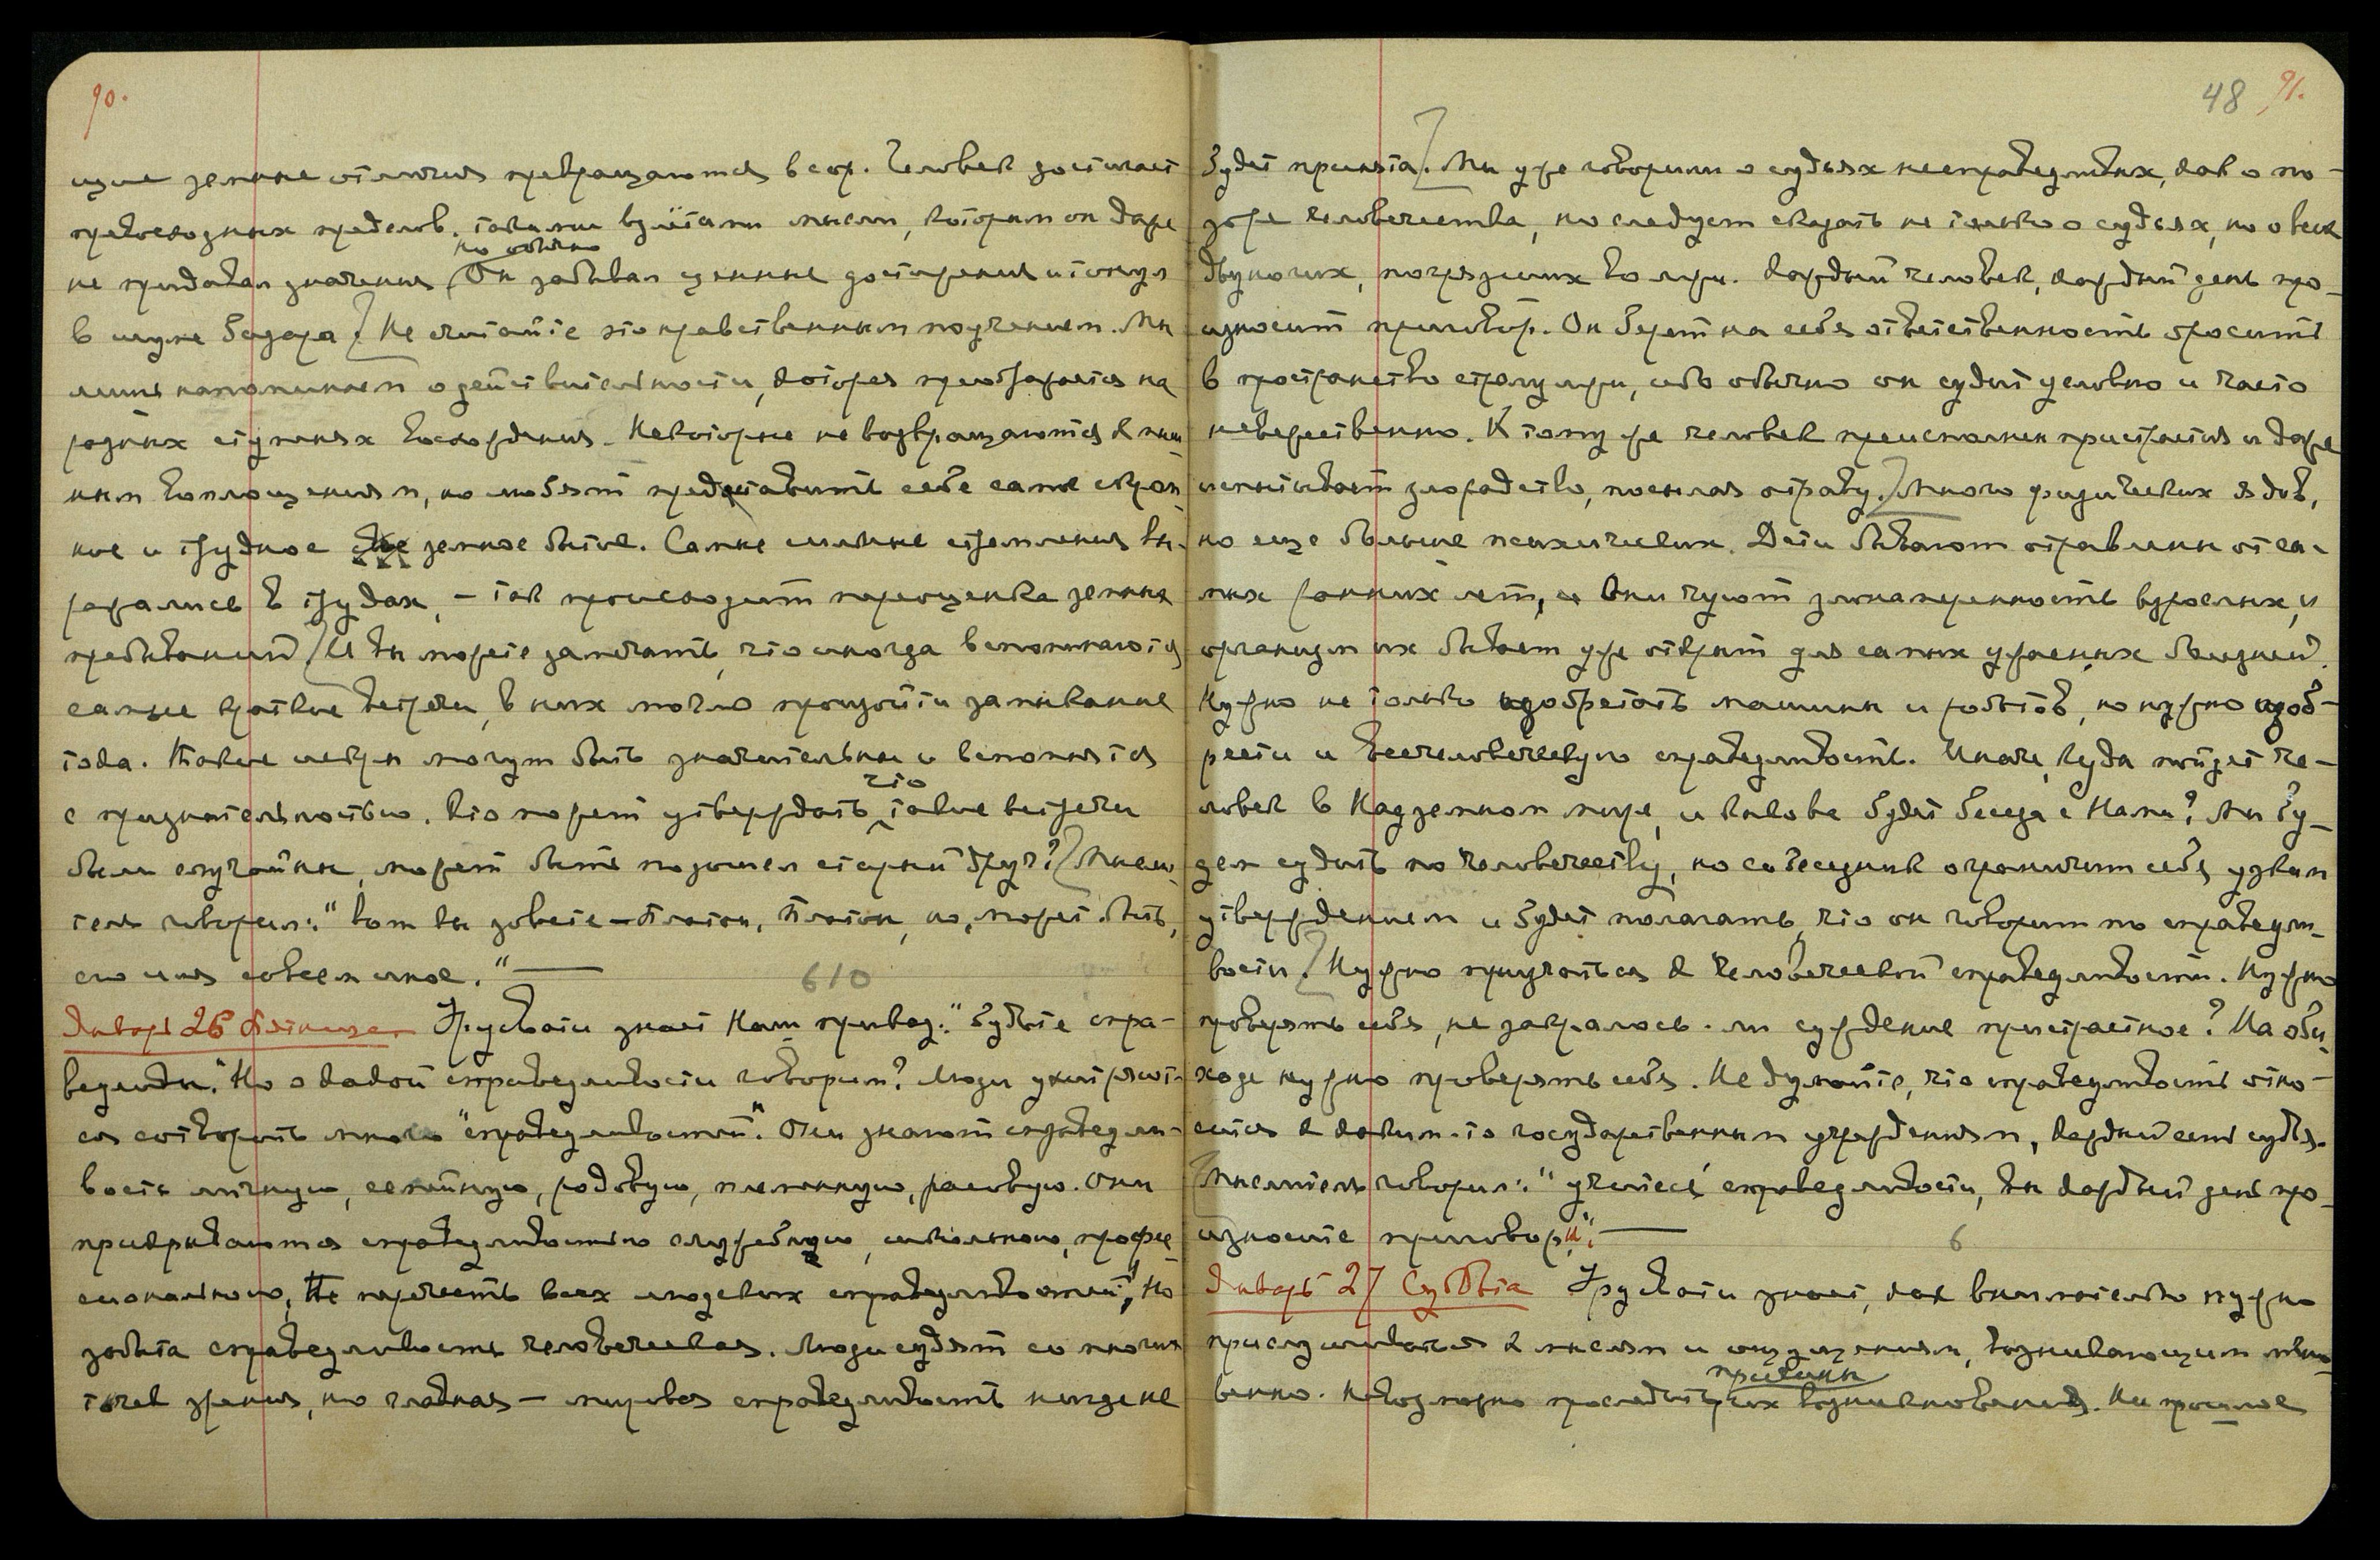 90.
щие земные отличия превращаются в сор. Человек достигает
превосходных пределов такими взлётами мысли, которым он даже
не придавал значения,
но обычно
Он забывал ценные достижения и тонул
в шуме базара. Не считайте это нравственным поучением. Мы
лишь напоминаем о действительности, которая преображается на
разных ступенях восхождения. Некоторые не возвращаются к пыш-
ным воплощениям, но любят представить себе самое скром-
ное и трудное земное бытие. Самые сильные стремления вы-
ражались в трудах, — так происходит переоценка земных
пребываний. И вы можете замечать, что иногда вспоминаются
самые краткие встречи, в них могло произойти замыкание
тока. Такие искры могут быть значительны и вспомнятся
что
с признательностью. Кто может утверждать, такие встречи
были случайны, может быть подошел старый друг? Мысли-
тель говорил: "Вот вы зовете — Платон, Платон, но, может быть,
его имя совсем иное." —
610
Январь 26 Пятница. Урусвати знает Наш призыв: "Будьте спра-
ведливы." Но о какой справедливости говорим? Люди умитряют-
ся сотворить много "справедливостей". Они знают справедли-
вость личную, семейную, родовую, племенную, расовую. Они
прикрываются справедливостью служебную, школьною, профес-
сиональною, Не перечесть всех людских справедливостей, но
забыта справедливость человеческая. Люди судят со многих
точек зрения, но главная — мировая справедливость нигде не
48 91.
будет принята. Мы уже говорили о судьях несправедливых, как о по-
зоре человечества, но следует сказать не только о судьях, но о всех
двуногих, погрязших во лжи. Каждый человек, каждый день про-
износит приговор. Он берет на себя ответственность бросить
в пространство стрелу лжи, ибо обычно он судит условно и часто
невежественно. К тому же человек преисполнен пристрастия и даже
испытывает злорадство, посылая отраву. Много физических ядов,
но еще больше психических. Дети бывают отравлены от са-
мых ранних лет, Они чуют злонамеренность взрослых, и
организм их бывает уже открыт для самых ужасных болезней.
Нужно не только изобретать машины и роботов, но нужно изоб-
рести и всечеловеческую справедливость. Иначе, куда пойдет че-
ловек в Надземном мире, и какова будет беседа с Нами? Мы бу-
дем судить по человечеству, но собеседник ограничит себя узким
утверждением и будет полагать, что он говорит по справедли-
вости. Нужно приучаться к человеческой справедливости. Нужно
проверять себя, не закралось-ли суждение пристрастное? На оби-
ходе нужно проверять себя. Не думайте, что справедливость отно-
сится к каким-то государственным учреждениям, каждый есть судья.
Мыслитель говорил: "Учитесь справедливости, вы каждый день про-
износите приговоры". —
6
Январь 27 Суббота Урусвати знает, как внимательно нужно
прислушиваться к мыслям и ощущениям, возникающим мгно-
причины
венно. Невозможно проследить их возникновения. Ни прошлое